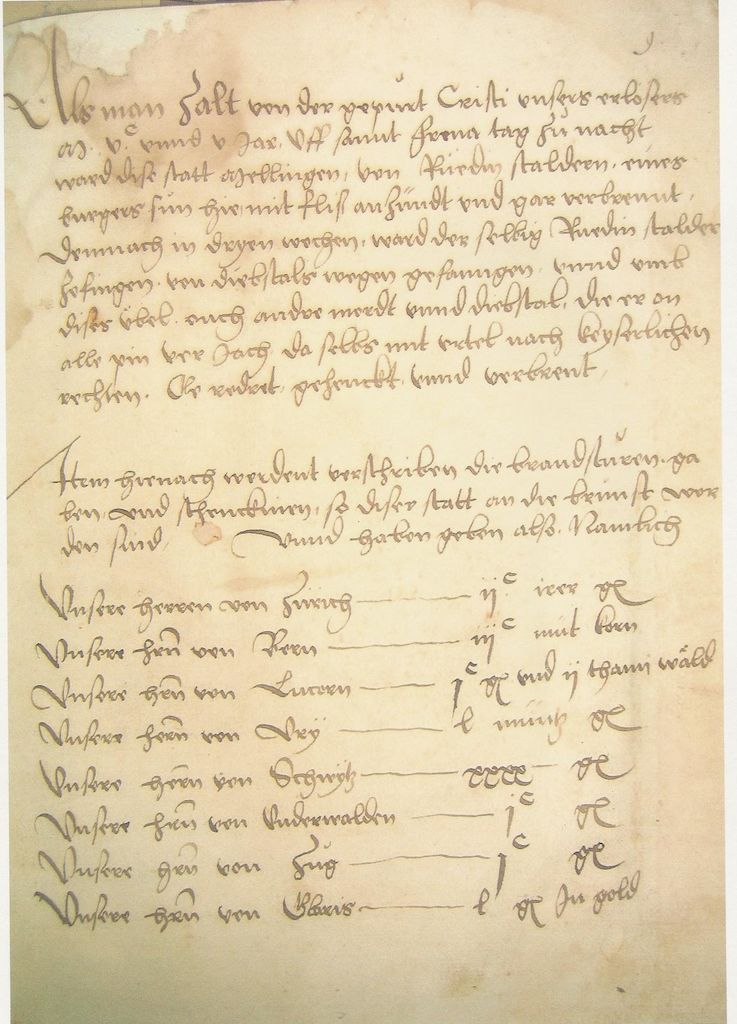 Als man zalt von der gepürt Cristi unsers erlosers
m. vᶜ. vnnd v Jar. Vff sannt frena tag zů nacht
ward dise statt Mellingen, von Růedin staldern, eines
burgers sun hie, mit fliss anzündt vnd gar verbrennt.
Demnach in dryen wochen, ward der selbig Růedin stalder
zofingen, von diebstals wegen gefanngen, vnnd vmb
dises übel, ouch andre mordt vnnd diebstal, die er on
alle pin ver Jach, da selbs mit vrtel nach keyserlichen
rechten, gehenckt, vnnd verbrent,
Item hienach werdent verschriben die brandstüren, ga
ben, vnd schenckinen, so diser statt an die brunst wor
den sind, Vnnd haben geben also, Namlich
Vnsere herren von Zürich ij ᶜ irer gl
Vnsere hrn̄ von Bern iij ᶜ müt korn
Vnsere hrn̄ von Lucern j ᶜ gl vnd ij thann wäld
Vnsere hern̄ von Vry l müntz gl
Vnsere hern̄ von Schwytz xxxx gl
Vnsere hrn̄ von Vnderwalden j ᶜ gl
Vnsere hrn̄ von Zug j ᶜ gl
Vnsere hrn̄ von Glaris l gl In gold